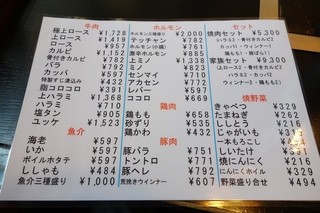 牛肉
極上ロース ¥1,728
上ロース ¥1,419
ロース ¥952
カルビ ¥952
骨付きカルビ ¥1,112
バラ ¥782
カッパ ¥592
特製てっちゃん
脂コロコロ ¥391
上ハラミ ¥1,368
ハラミ ¥710
塩タン ¥1,306
ユッケ ¥1,523
魚介
海老 ¥597
いか ¥597
ボイルホタテ ¥597
ししゃも ¥597
魚介三種盛り ¥1,000
ホルモン
ホルモン三種盛り ¥2,000
テッチャン ¥782
ホルモン(小腸) ¥761
激辛ホルモン ¥885
上ミノ ¥1,338
ミノ ¥823
ハツ ¥823
センマイ ¥432
アカセン ¥772
レバー ¥597
ココロ ¥669
鶏肉
鶏もも ¥658
ずり ¥550
鶏かわ ¥432
豚肉
豚バラ ¥751
トントロ ¥771
豚ヘレ ¥792
荒挽きウインナー ¥607
セット
焼肉セット ¥5,300
家族セット ¥9,300
焼野菜
きゃべつ ¥329
たまねぎ ¥262
ししとう ¥262
じゃがいも ¥314
一本もろこし ¥391
しいたけ ¥331
焼にんにく ¥216
にんにくホイル ¥329
野菜盛り合せ ¥494